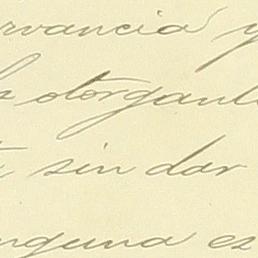 rvancia y
s otorgante
, sin dar
nguna es